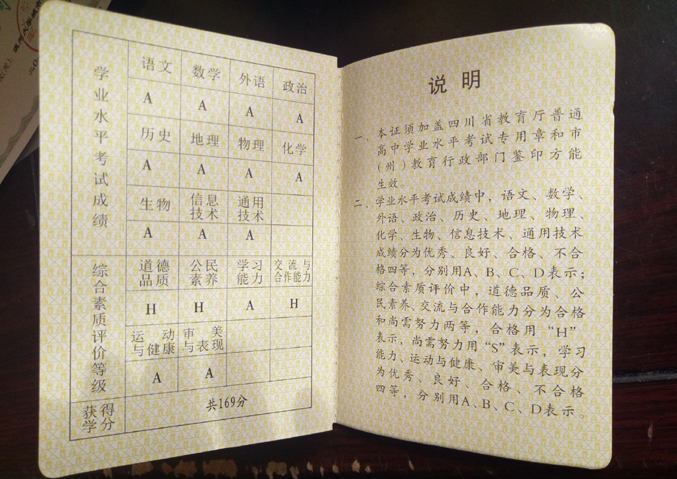 学业水平考试成绩
语文 数学 外语 政治
A A A A
历史 地理 物理 化学
A A A A
生物 信息技术 通用技术
A A A
综合素质评价等级
道德品质 公民素养 学习能力 交流与合作能力
H H A H
运动与健康 审美与表现
A A
获得学分 共169分
说明
一、本证须加盖四川省教育厅普通
高中学业水平考试专用章和市
(州)教育行政部门签印方能
生效。
二、学业水平考试成绩中,语文、数学、
外语、政治、历史、地理、物理、
化学、生物、信息技术、通用技术
成绩分为优秀、良好、合格、不合
格四等,分别用A、B、C、D表示;
综合素质评价中,道德品质、公
民素养、交流与合作能力分为合格
和尚需努力两等,合格用“H”
表示,尚需努力用“S”表示,学习
能力、运动与健康、审美与表现分
为优秀、良好、合格、不合格
四等,分别用A、B、C、D表示。